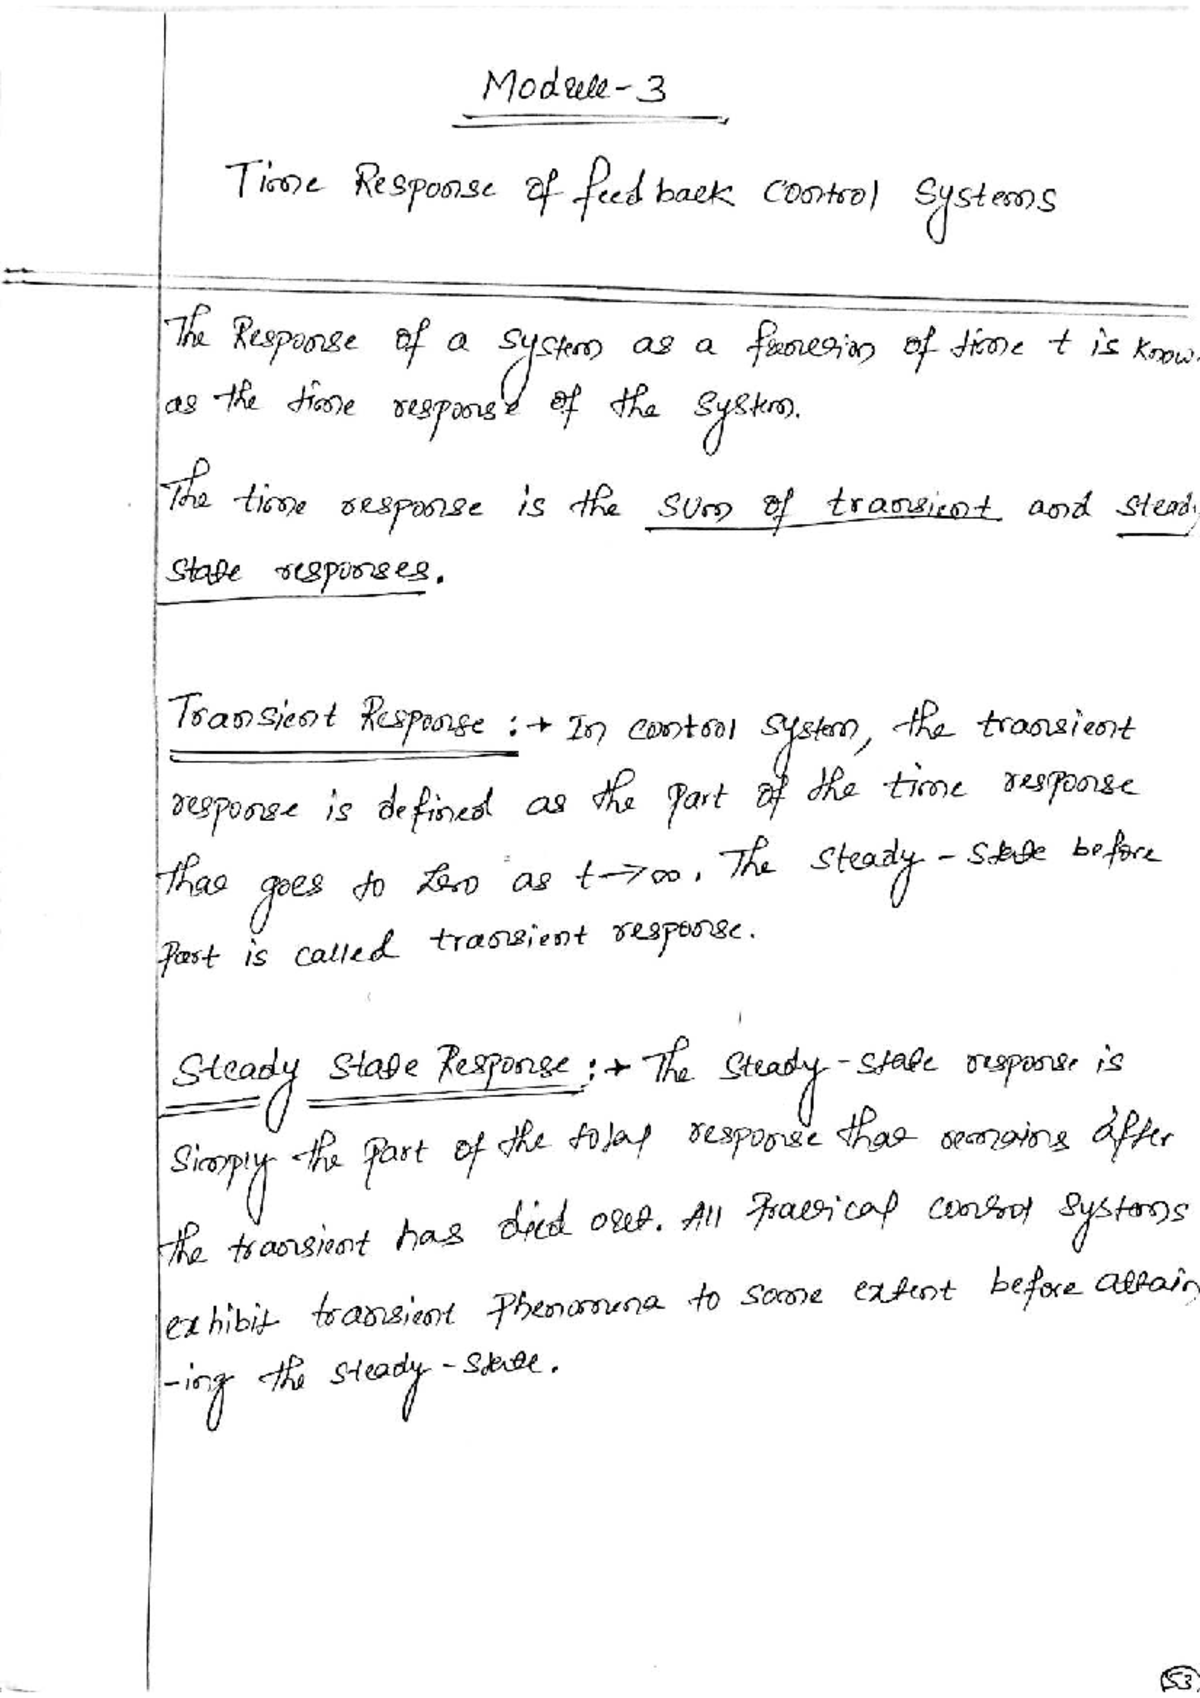 Module-3
Time Response of feedback control systems
The Response of a system as a function of time t is know
as the time response of the system.
The time response is the sum of transient and steady
state responses.
Transient Response :→ In control system, the transient
response is defined as the part of the time response
that goes to zero as t→∞. The steady-state before
part is called transient response.
Steady State Response :→ The steady-state response is
simply the part of the total response that remains after
the transient has died out. All Practical control systems
exhibit transient Phenomena to some extent before attain
-ing the steady-state.
53